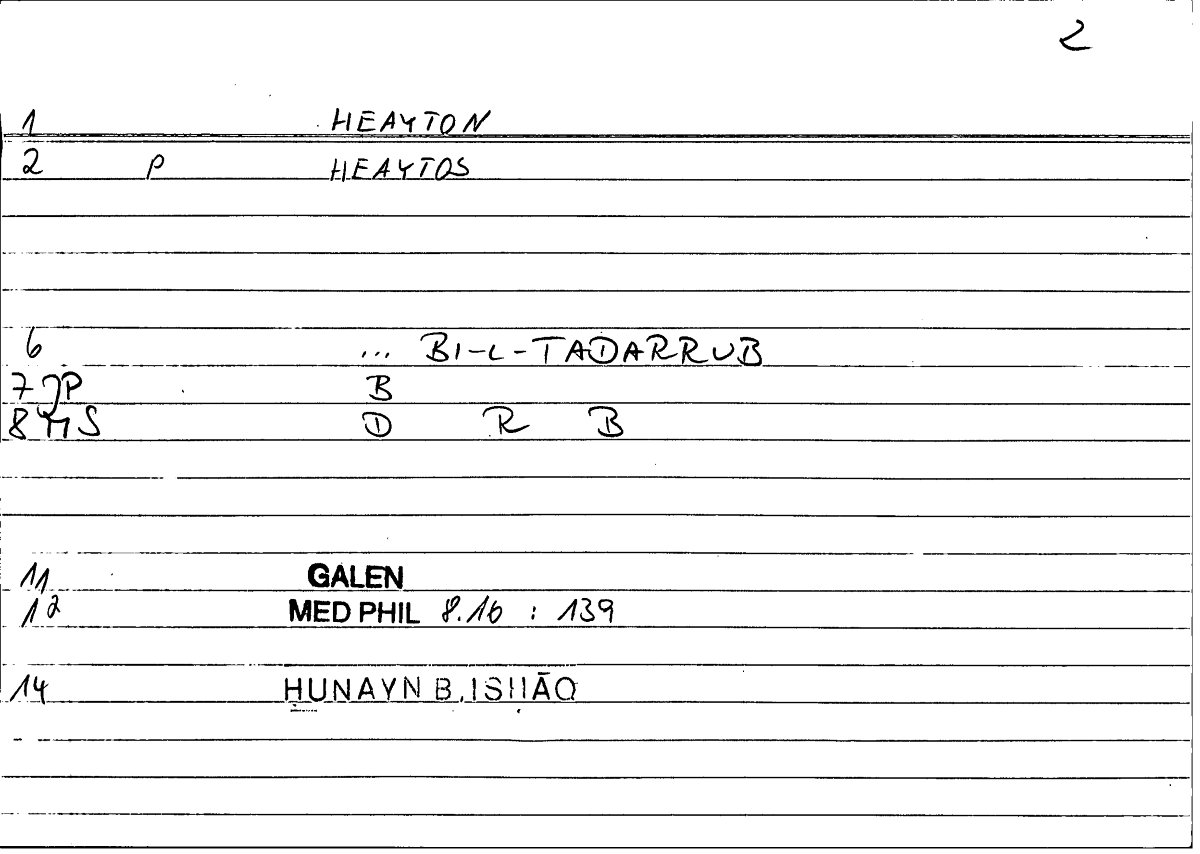 2
1 HEAYTON
2 P HEAYTOS
6 ... BI-L-TADARRUB
7 JP B
8 MS D R B
11 GALEN
12 MED PHIL 8.16 : 139
14 ḤUNAYN B. ISḤĀQ